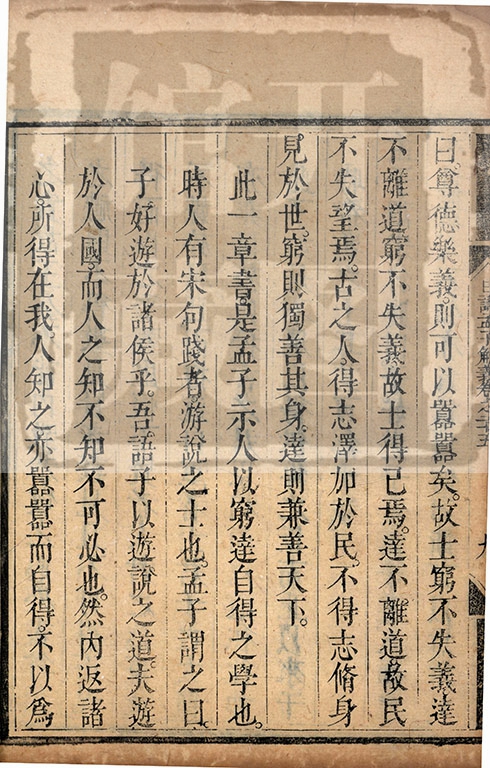 曰尊德樂義則可以囂囂矣。故士窮不失義達
不離道窮不失義故士得己焉。達不離道故民
不失望焉。古之人得志澤加於民。不得志脩身
見於世。窮則獨善其身。達則兼善天下。
此一章書是孟子示人以窮達自得之學也。
時人有宋句踐者游說之士也。孟子謂之曰
子好遊於諸侯乎。吾語子以遊說之道。夫遊
於人國。而人之知不知不可必也。然內返諸
心。所得在我。人知之亦囂囂而自得。不以為
日講孟子解義卷之二十五
九